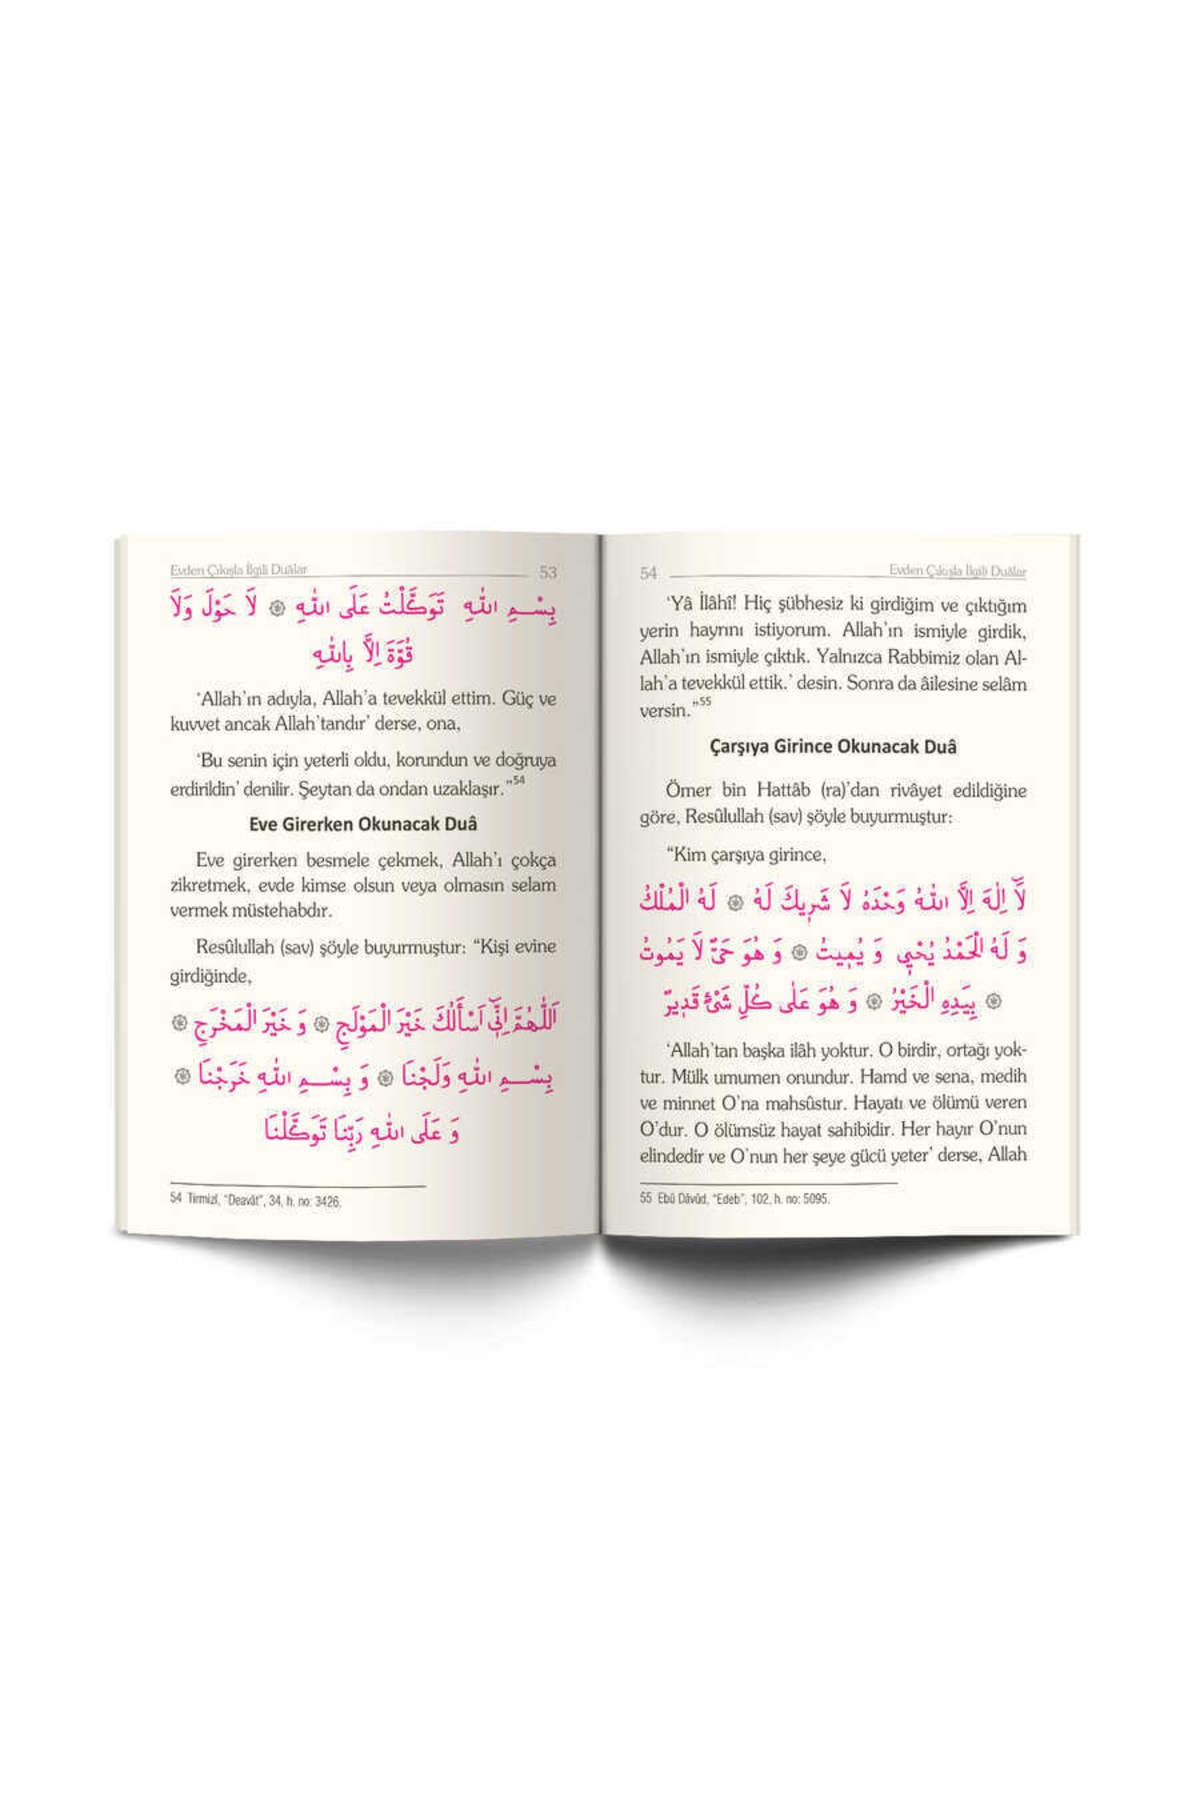 Evden Çıkışla İlgili Duâlar 53
بِسْمِ اللّٰهِ تَوَكَّلْتُ عَلَى اللّٰهِ ۞ لَا حَوْلَ وَلَا
قُوَّةَ اِلَّا بِاللّٰهِ
‘Allah’ın adıyla, Allah’a tevekkül ettim. Güç ve
kuvvet ancak Allah’tandır’ derse, ona,
‘Bu senin için yeterli oldu, korundun ve doğruya
erdirildin’ denilir. Şeytan da ondan uzaklaşır.”54
Eve Girerken Okunacak Duâ
Eve girerken besmele çekmek, Allah’ı çokça
zikretmek, evde kimse olsun veya olmasın selam
vermek müstehabdır.
Resûlullah (sav) şöyle buyurmuştur: “Kişi evine
girdiğinde,
اَللّٰهُمَّ اِنِّٓي اَسْأَلُكَ خَيْرَ الْمَوْلَجِ ۞ وَ خَيْرَ الْمَخْرَجِ ۞
بِسْمِ اللّٰهِ وَلَجْنَا ۞ وَ بِسْمِ اللّٰهِ خَرَجْنَا ۞
وَ عَلَى اللّٰهِ رَبِّنَا تَوَكَّلْنَا
54 Tirmizî, “Deavât”, 34, h. no: 3426.
54 Evden Çıkışla İlgili Duâlar
‘Yâ İlâhî! Hiç şübhesiz ki girdiğim ve çıktığım
yerin hayrını istiyorum. Allah’ın ismiyle girdik,
Allah’ın ismiyle çıktık. Yalnızca Rabbimiz olan Al-
lah’a tevekkül ettik.’ desin. Sonra da âilesine selâm
versin.”55
Çarşıya Girince Okunacak Duâ
Ömer bin Hattâb (ra)’dan rivâyet edildiğine
göre, Resûlullah (sav) şöyle buyurmuştur:
“Kim çarşıya girince,
لَٓا اِلٰهَ اِلَّا اللّٰهُ وَحْدَهُ لَا شَرِيكَ لَهُ ۞ لَهُ الْمُلْكُ
وَ لَهُ الْحَمْدُ يُحْيِي وَ يُمِيتُ ۞ وَ هُوَ حَىٌّ لَا يَمُوتُ
۞ بِيَدِهِ الْخَيْرُ ۞ وَ هُوَ عَلٰى كُلِّ شَيْءٍ قَدِيرٌ
‘Allah’tan başka ilâh yoktur. O birdir, ortağı yok-
tur. Mülk umumen onundur. Hamd ve sena, medih
ve minnet O’na mahsûstur. Hayatı ve ölümü veren
O’dur. O ölümsüz hayat sahibidir. Her hayır O’nun
elindedir ve O’nun her şeye gücü yeter’ derse, Allah
55 Ebû Dâvûd, “Edeb”, 102, h. no: 5095.